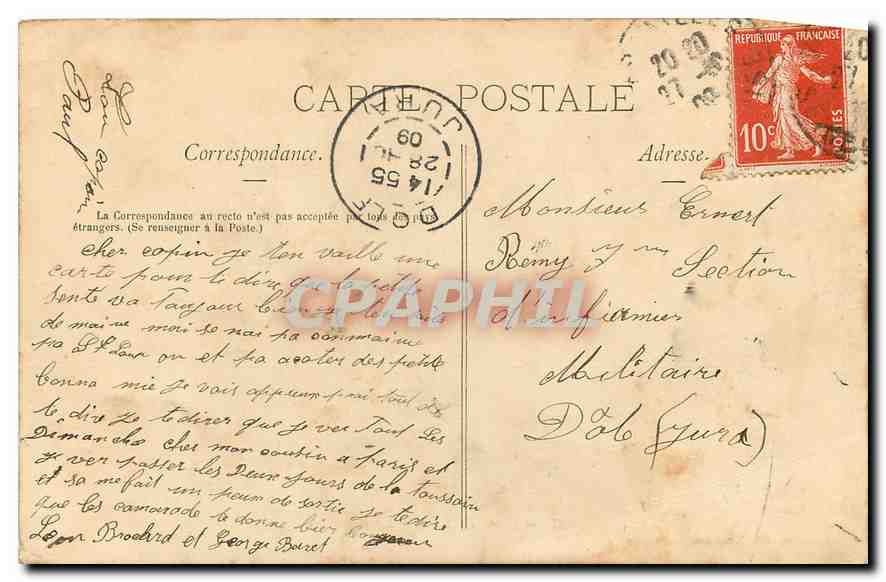 CARTE POSTALE
Correspondance.
Adresse.
La Correspondance au recto n'est pas acceptée par tous les pays
étrangers. (Se renseigner à la Poste.)
REPUBLIQUE FRANÇAISE
10c
POSTES
20 20
27
DOLE
14 55
28
09
JURA
CPAPHIL
Monsieur Ernest
Remy 7me Section
d'infirmier
Militaire
Dôle (Jura)
Ton copain
cher copin je ten vaille une
carte pour te dire que la petite
sente va Toujour bien
de maime moi se nai pa
pa St Loup on et pa a coter des petite
bonna mie je vais apprendrai tout
te dire je te direr que je ver Tout Les
Dimanche cher mon cousin a paris et
je ver passer les Deux jours de la toussain
et sa me fait un peux de sortie je te dire
que les camarade te donne bien
Leon Brodard et George